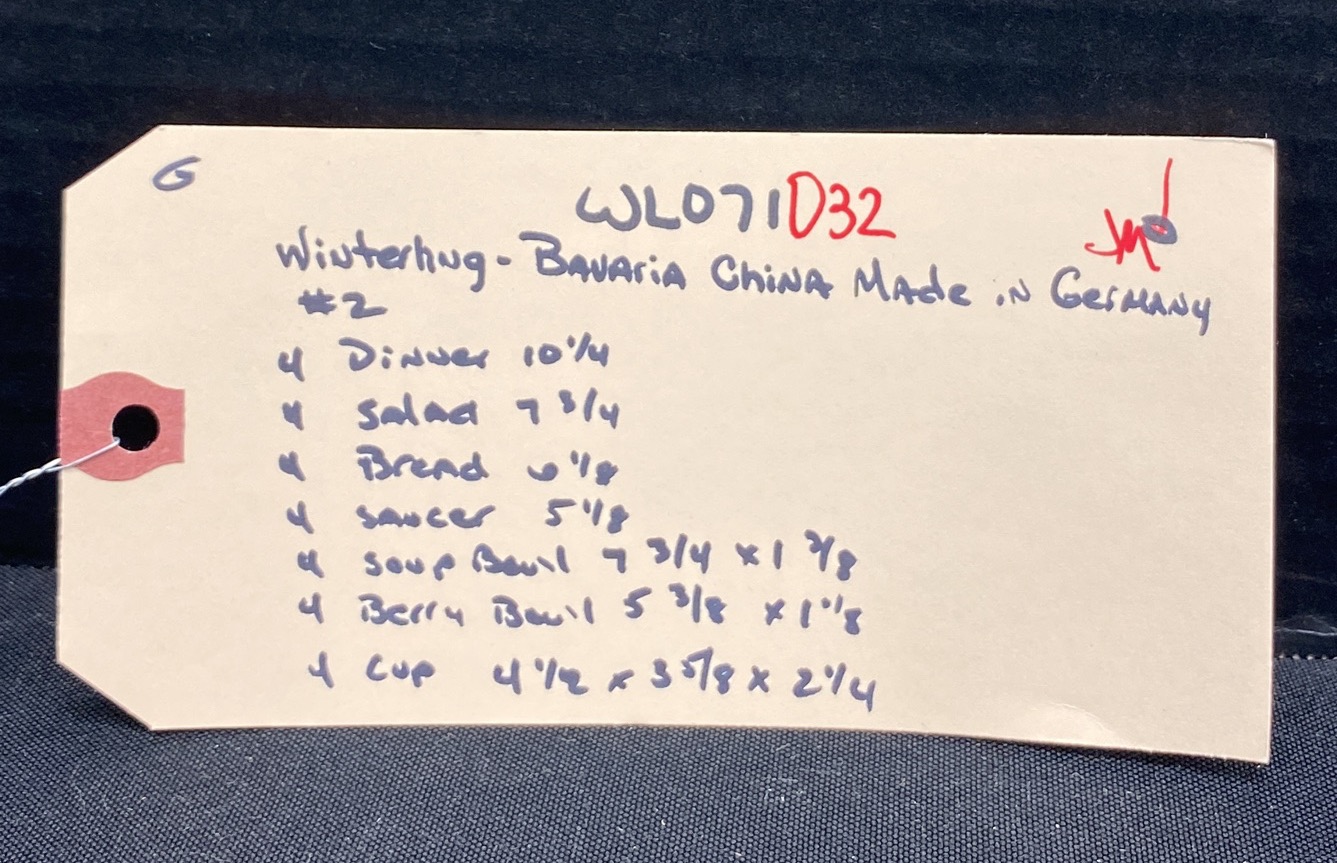 G
WL071D32
Winterling - Bavaria China Made in Germany
#2
4 Dinner 10 1/4
4 Salad 7 3/4
4 Bread 6 1/8
4 Saucer 5 1/8
4 Soup Bowl 7 3/4 x 1 3/8
4 Berry Bowl 5 3/8 x 1 1/8
4 Cup 4 1/2 x 3 5/8 x 2 1/4